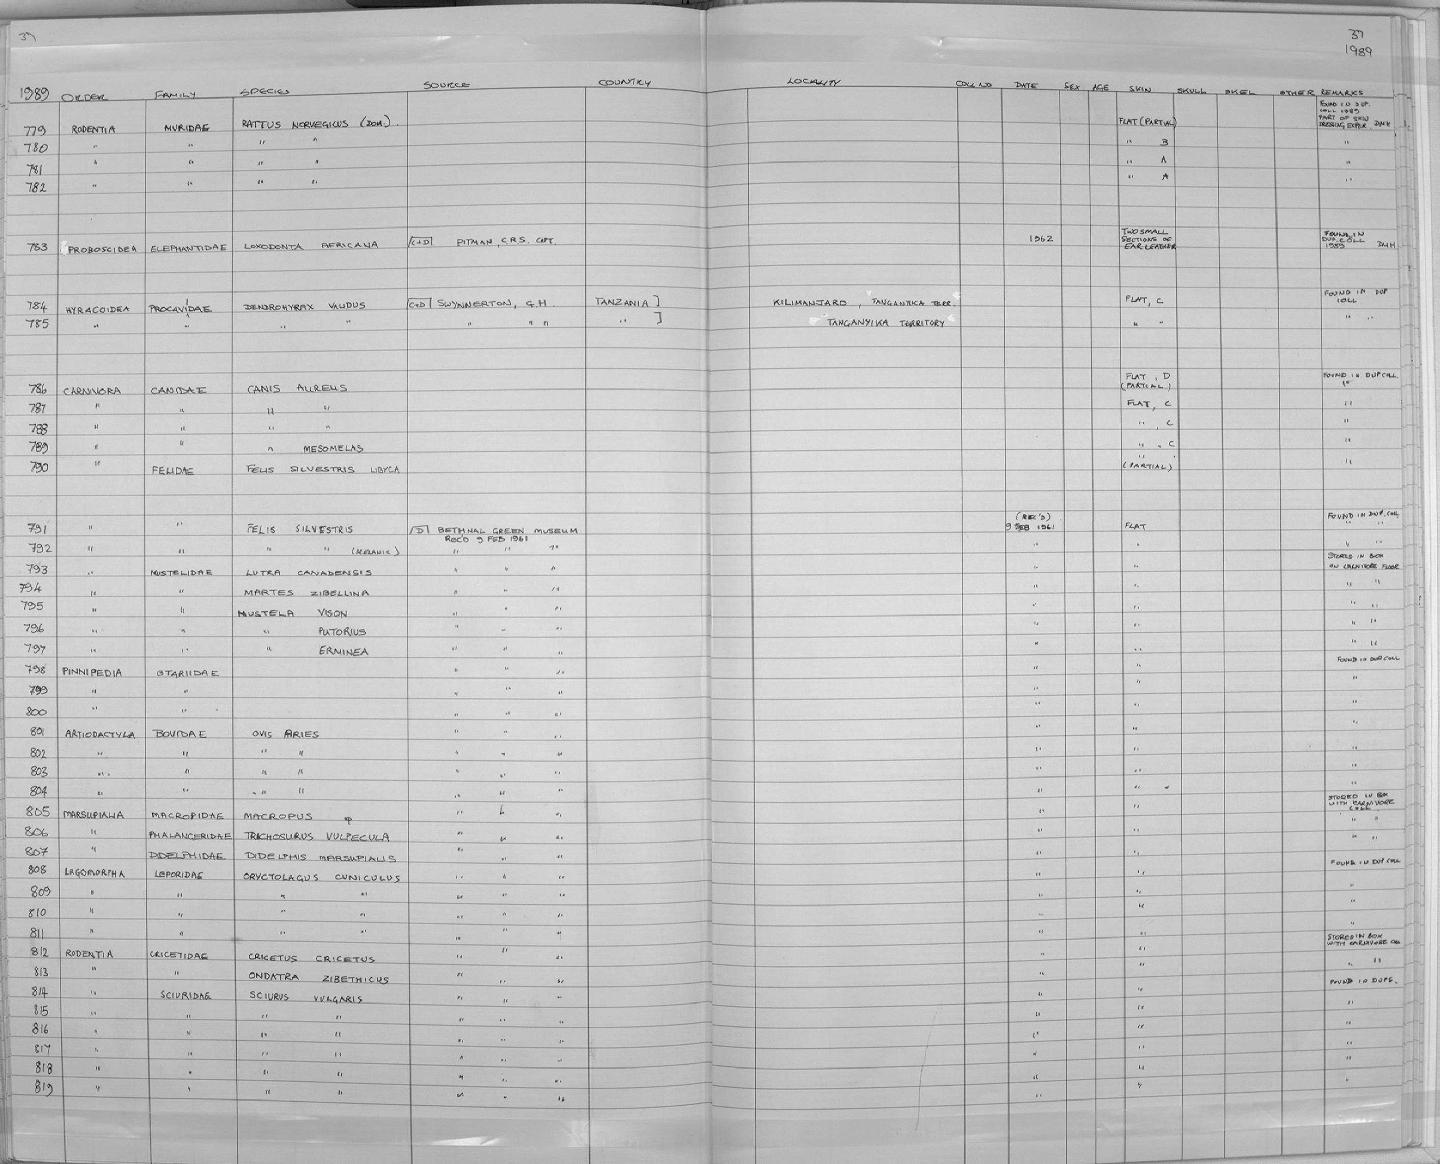 37 37
1989
1989 ORDER FAMILY SPECIES SOURCE COUNTRY LOCALITY COLL NO DATE SEX AGE SKIN SKULL SKEL OTHER REMARKS
779 RODENTIA MURIDAE RATTUS NORVEGICUS (DOM). FLAT (PARTIAL) FOUND IN DUP. COLL 1989 PART OF SKIN DRESSING EXPER. DMH
780 " " " " " B "
781 " " " " " A "
782 " " " " " A "
783 PROBOSCIDEA ELEPHANTIDAE LOXODONTA AFRICANA [C+D] PITMAN, C.R.S. CAPT. 1962 TWO SMALL SECTIONS OF EAR LEATHER FOUND IN DUP. COLL 1989 DMH
784 HYRACOIDEA PROCAVIDAE DENDROHYRAX VALIDUS [C+D] SWYNNERTON, G.H. TANZANIA] KILIMANJARO, TANGANYIKA TERR. FLAT, C FOUND IN DUP COLL
785 " " " " " " " " ] TANGANYIKA TERRITORY " " " "
786 CARNIVORA CANIDAE CANIS AUREUS FLAT, D (PARTIAL) FOUND IN DUP COLL
787 " " " " FLAT, C "
788 " " " " " , C "
789 " " " MESOMELAS " , C "
790 " FELIDAE FELIS SILVESTRIS LIBYCA " (PARTIAL) "
791 " " FELIS SILVESTRIS [D] BETHNAL GREEN MUSEUM REC'D 9 FEB 1961 (REC'D) 9 FEB 1961 FLAT FOUND IN DUP. COLL " "
792 " " " " (MELANIC) " " " " " " "
793 " MUSTELIDAE LUTRA CANADENSIS " " " " " STORED IN BOX ON CARNIVORE FLOOR
794 " " MARTES ZIBELLINA " " " " " " "
795 " " MUSTELA VISON " " " " " " "
796 " " " PUTORIUS " " " " " " "
797 " " " ERMINEA " " " " " " "
798 PINNIPEDIA OTARIIDAE " " " " " FOUND IN DUP COLL
799 " " " " " " "
800 " " " " " " " "
801 ARTIODACTYLA BOVIDAE OVIS ARIES " " " " " "
802 " " " " " " " " " "
803 " " " " " " " " " "
804 " " " " " " " " " "
805 MARSUPIALIA MACROPIDAE MACROPUS sp " " " " " STORED IN BOX WITH CARNIVORE COLL
806 " PHALANGERIDAE TRICHOSURUS VULPECULA " " " " " " "
807 " DIDELPHIDAE DIDELPHIS MARSUPIALIS " " " " " " "
808 LAGOMORPHA LEPORIDAE ORYCTOLAGUS CUNICULUS " " " " " FOUND IN DUP COLL
809 " " " " " " " " " "
810 " " " " " " " " " "
811 " " " " " " " " " "
812 RODENTIA CRICETIDAE CRICETUS CRICETUS " " " " " STORED IN BOX WITH CARNIVORE
813 " " ONDATRA ZIBETHICUS " " " " " " "
814 " SCIURIDAE SCIURUS VULGARIS " " " " " FOUND IN DUPS.
815 " " " " " " " " " "
816 " " " " " " " " " "
817 " " " " " " " " " "
818 " " " " " " " " " "
819 " " " " " " " " " "